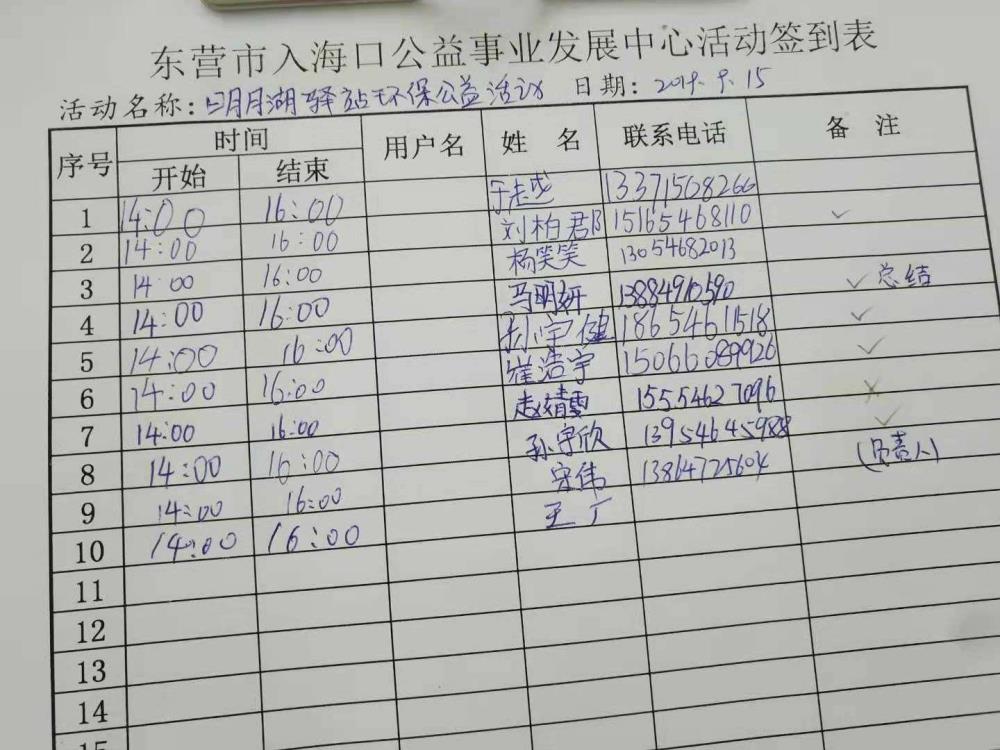 东营市入海口公益事业发展中心活动签到表
活动名称：明月湖驿站环保公益活动 日期：2019.9.15
序号 时间 用户名 姓名 联系电话 备注
开始 结束
1 14:00 16:00 13371508266
2 14:00 16:00 刘柏君 15165468110 ✓
3 14:00 16:00 杨笑笑 13054682013
4 14:00 16:00 马明妍 13884910590 ✓总结
5 14:00 16:00 孙宇健 18654611518 ✓
6 14:00 16:00 崔浩宇 15066089926 ✓
7 14:00 16:00 赵婧雯 15554627096 ×
8 14:00 16:00 孙守欣 13954645988 ✓
9 14:00 16:00 宋伟 13864725604 (负责人)
10 14:00 16:00 王广
11
12
13
14
15